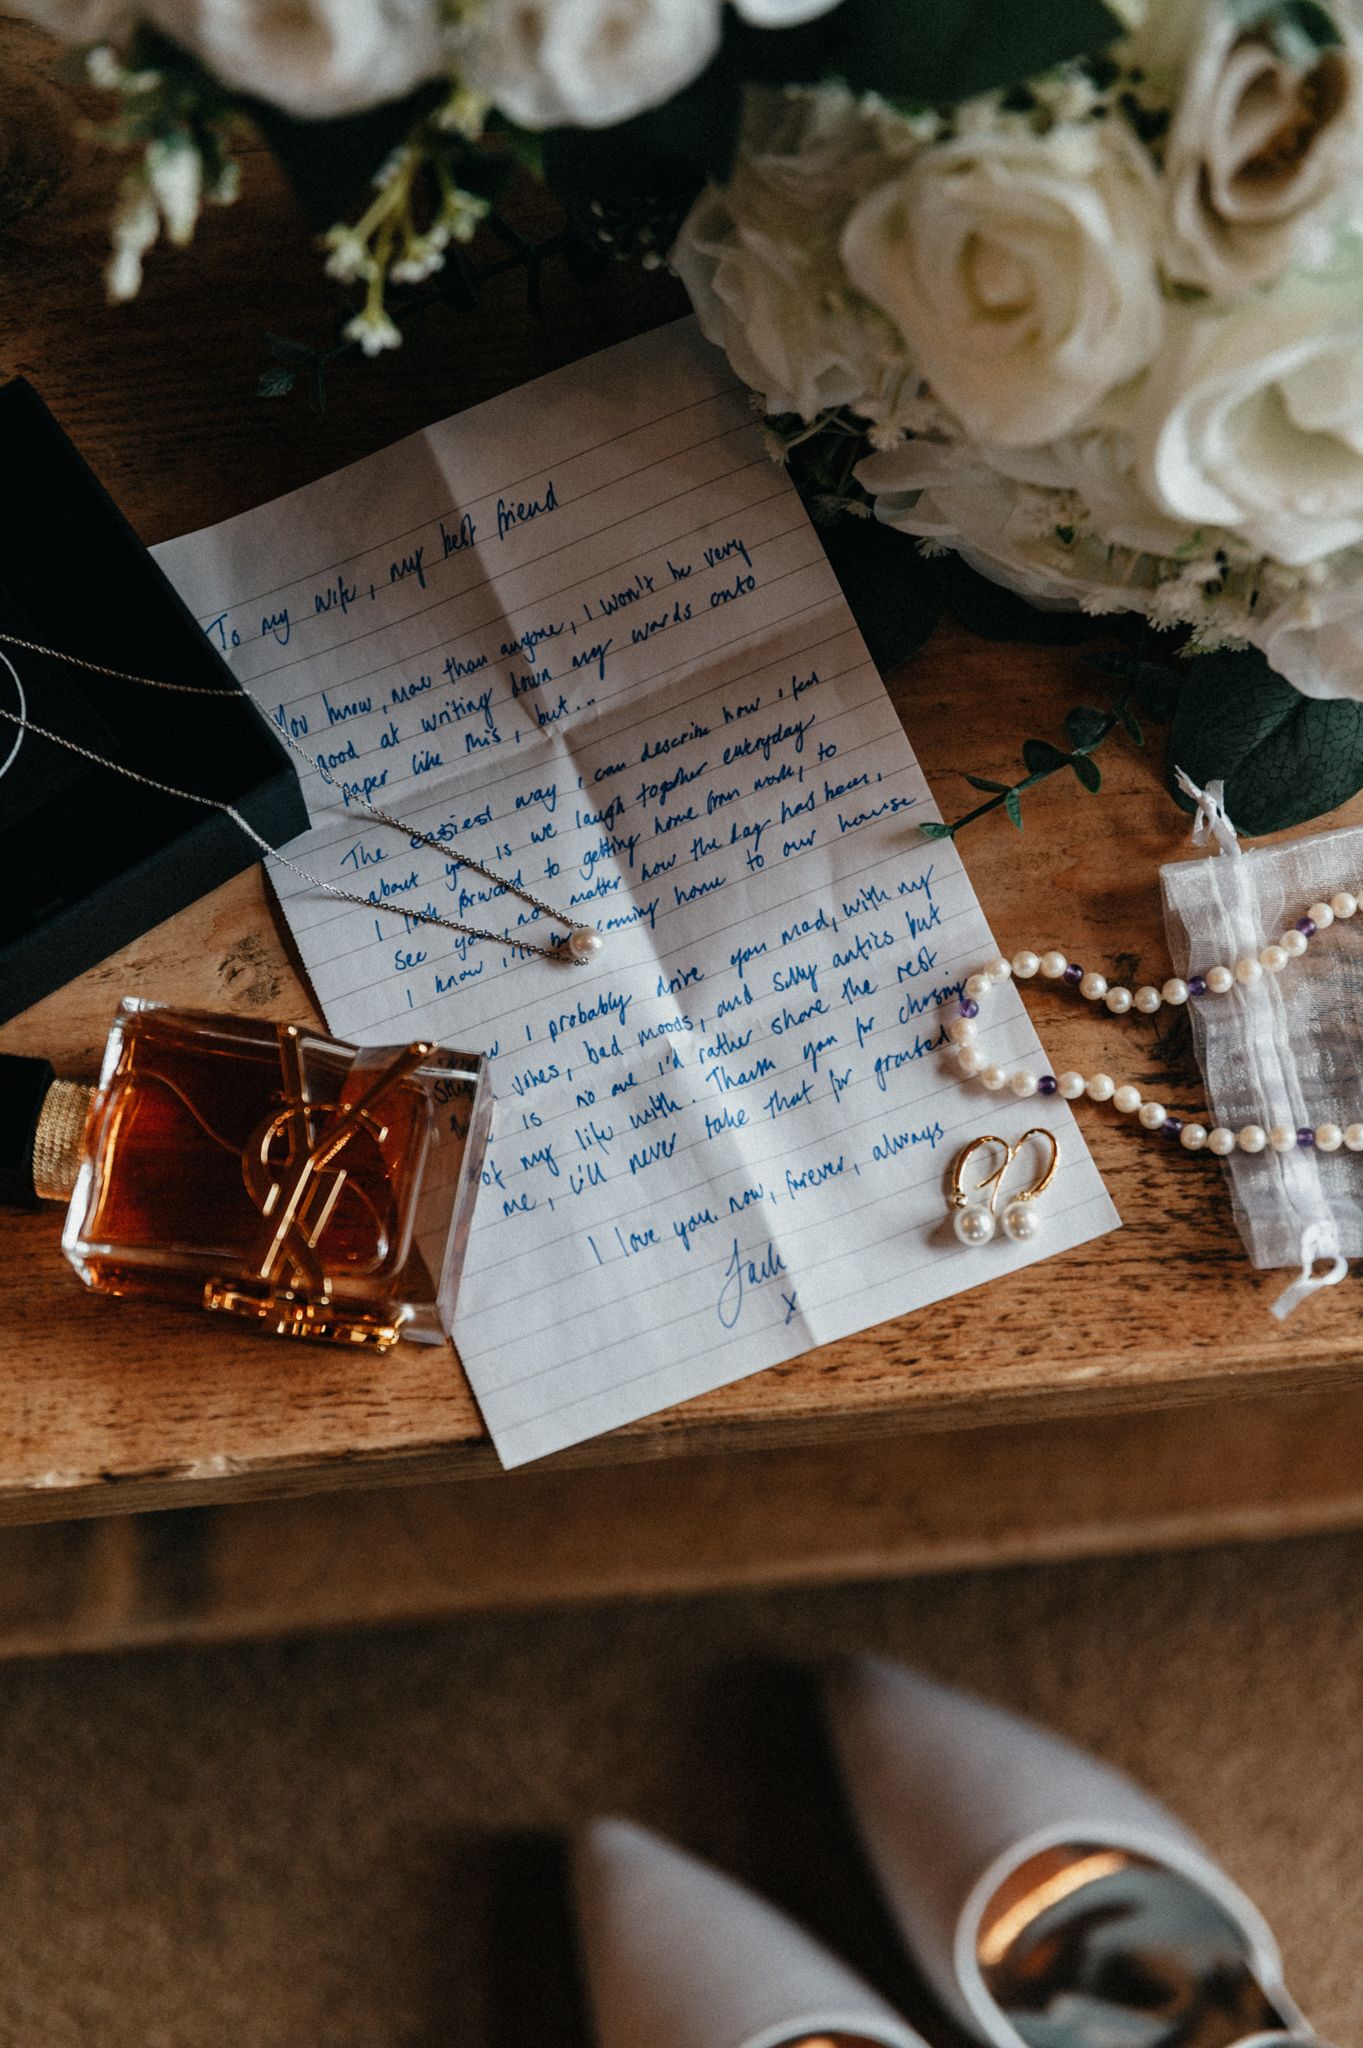 To my wife, my best friend
You know, more than anyone, I won't be very
good at writing down my words onto
paper like this, but...
The easiest way I can describe how I feel
about you, is we laugh together everyday
I look forward to getting home from work, to
see you, no matter how the day has been,
I know I'll be coming home to our house
I probably drive you mad, with my
jokes, bad moods, and silly antics but
is no one I'd rather share the rest
of my life with. Thank you for choosing
me, I'll never take that for granted
I love you. now, forever, always
Jack
x